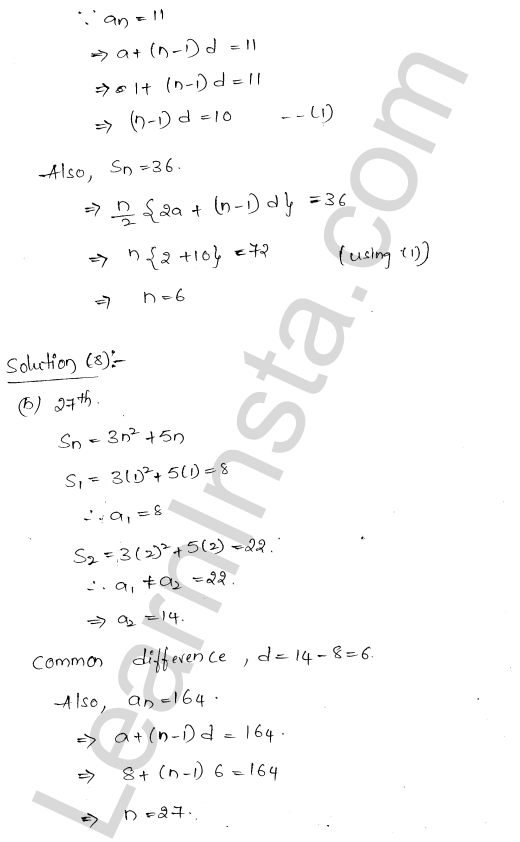 ∵ an = 11
⇒ a + (n-1) d = 11
⇒ 1 + (n-1) d = 11
⇒ (n-1) d = 10 --(1)
Also, Sn = 36.
⇒ n/2 {2a + (n-1) d} = 36
⇒ n {2 + 10} = 72 (using (1))
⇒ n = 6
Solution (8):-
(b) 27th.
Sn = 3n² + 5n
S1 = 3(1)² + 5(1) = 8
∴ a1 = 8
S2 = 3(2)² + 5(2) = 22.
∴ a1 + a2 = 22.
⇒ a2 = 14.
Common difference, d = 14 - 8 = 6.
Also, an = 164.
⇒ a + (n-1) d = 164.
⇒ 8 + (n-1) 6 = 164
⇒ n = 27.
LearnInsta.com